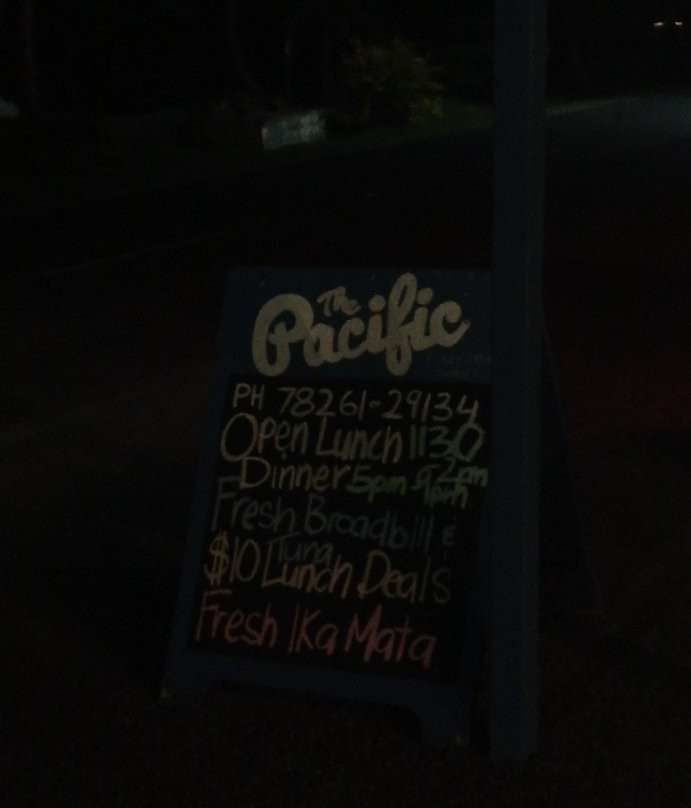 The
Pacific
PH 78261-29134
Open Lunch 1130
2pm
Dinner 5pm 9pm
Fresh Broadbill &
Tuna
$10 Lunch Deals
Fresh IKa Mata